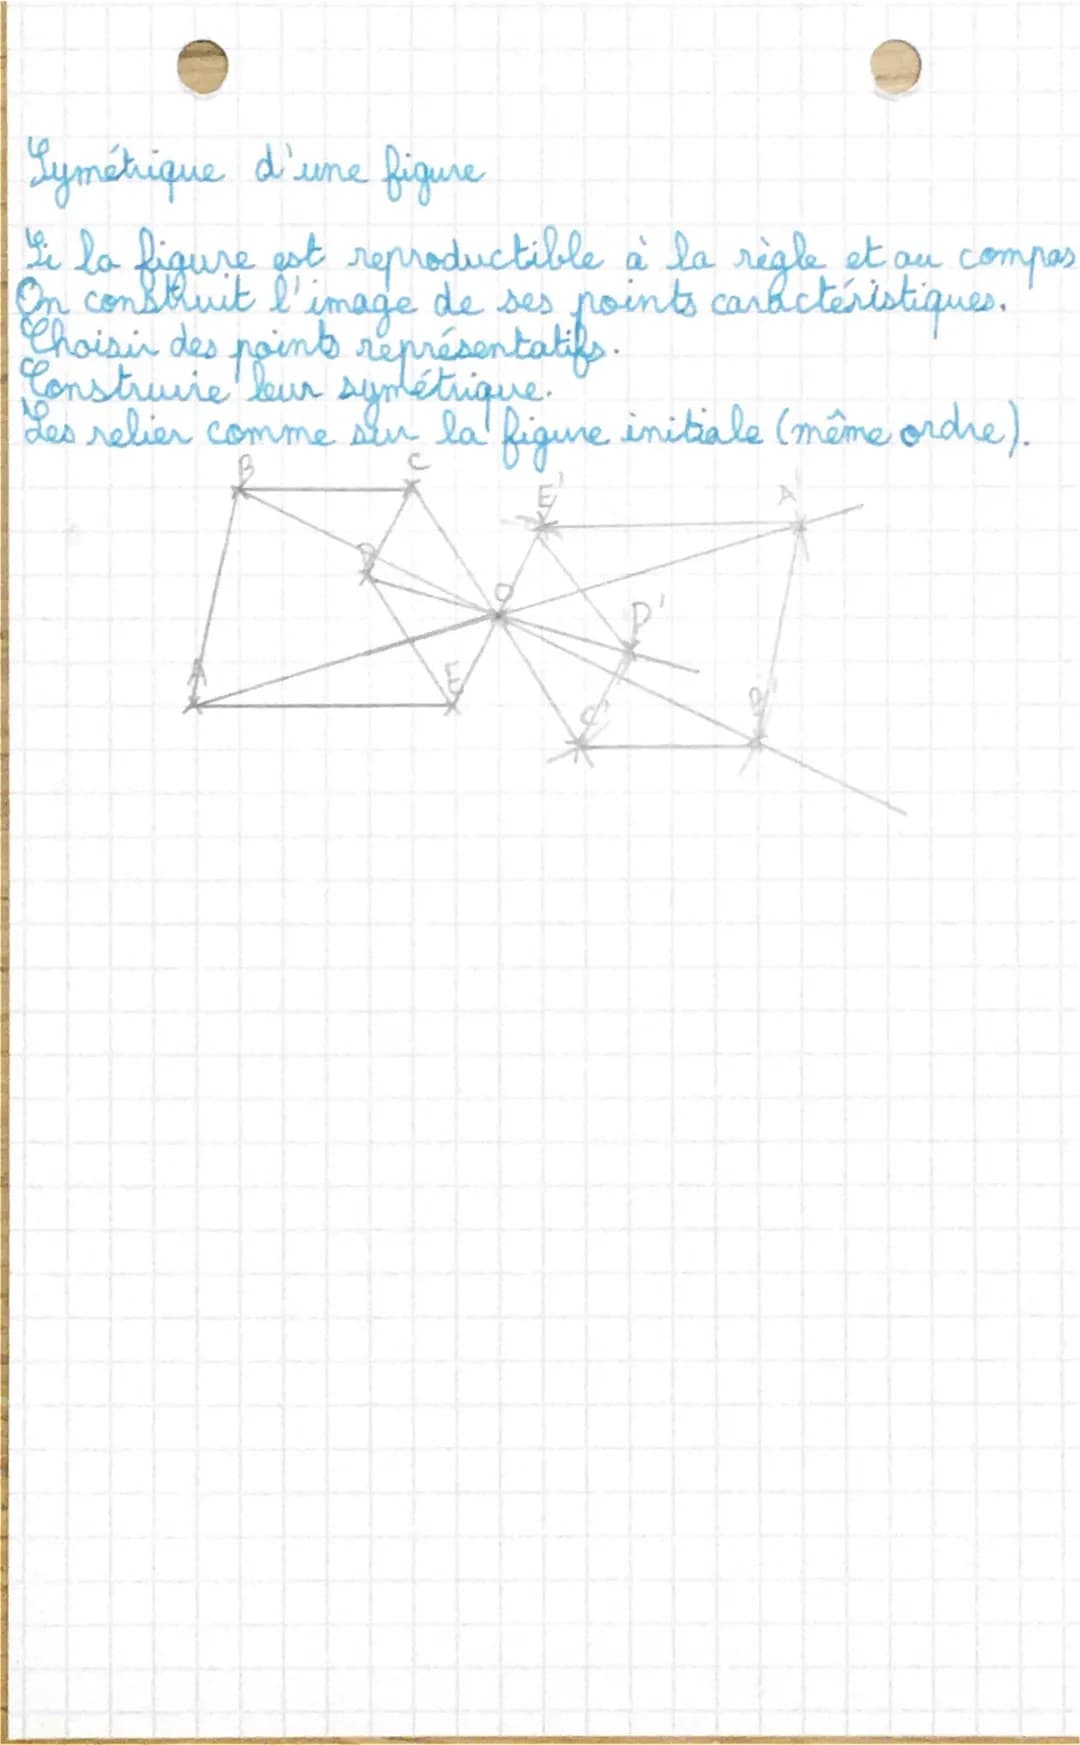 Symétrique d'une figure
Si la figure est reproductible à la règle et au compas
On construit l'image de ses points caractéristiques.
Choisir des points représentatifs.
Construire leur symétrique.
Les relier comme sur la figure initiale (même ordre).
B C E' A'
D O D'
A E C' B'